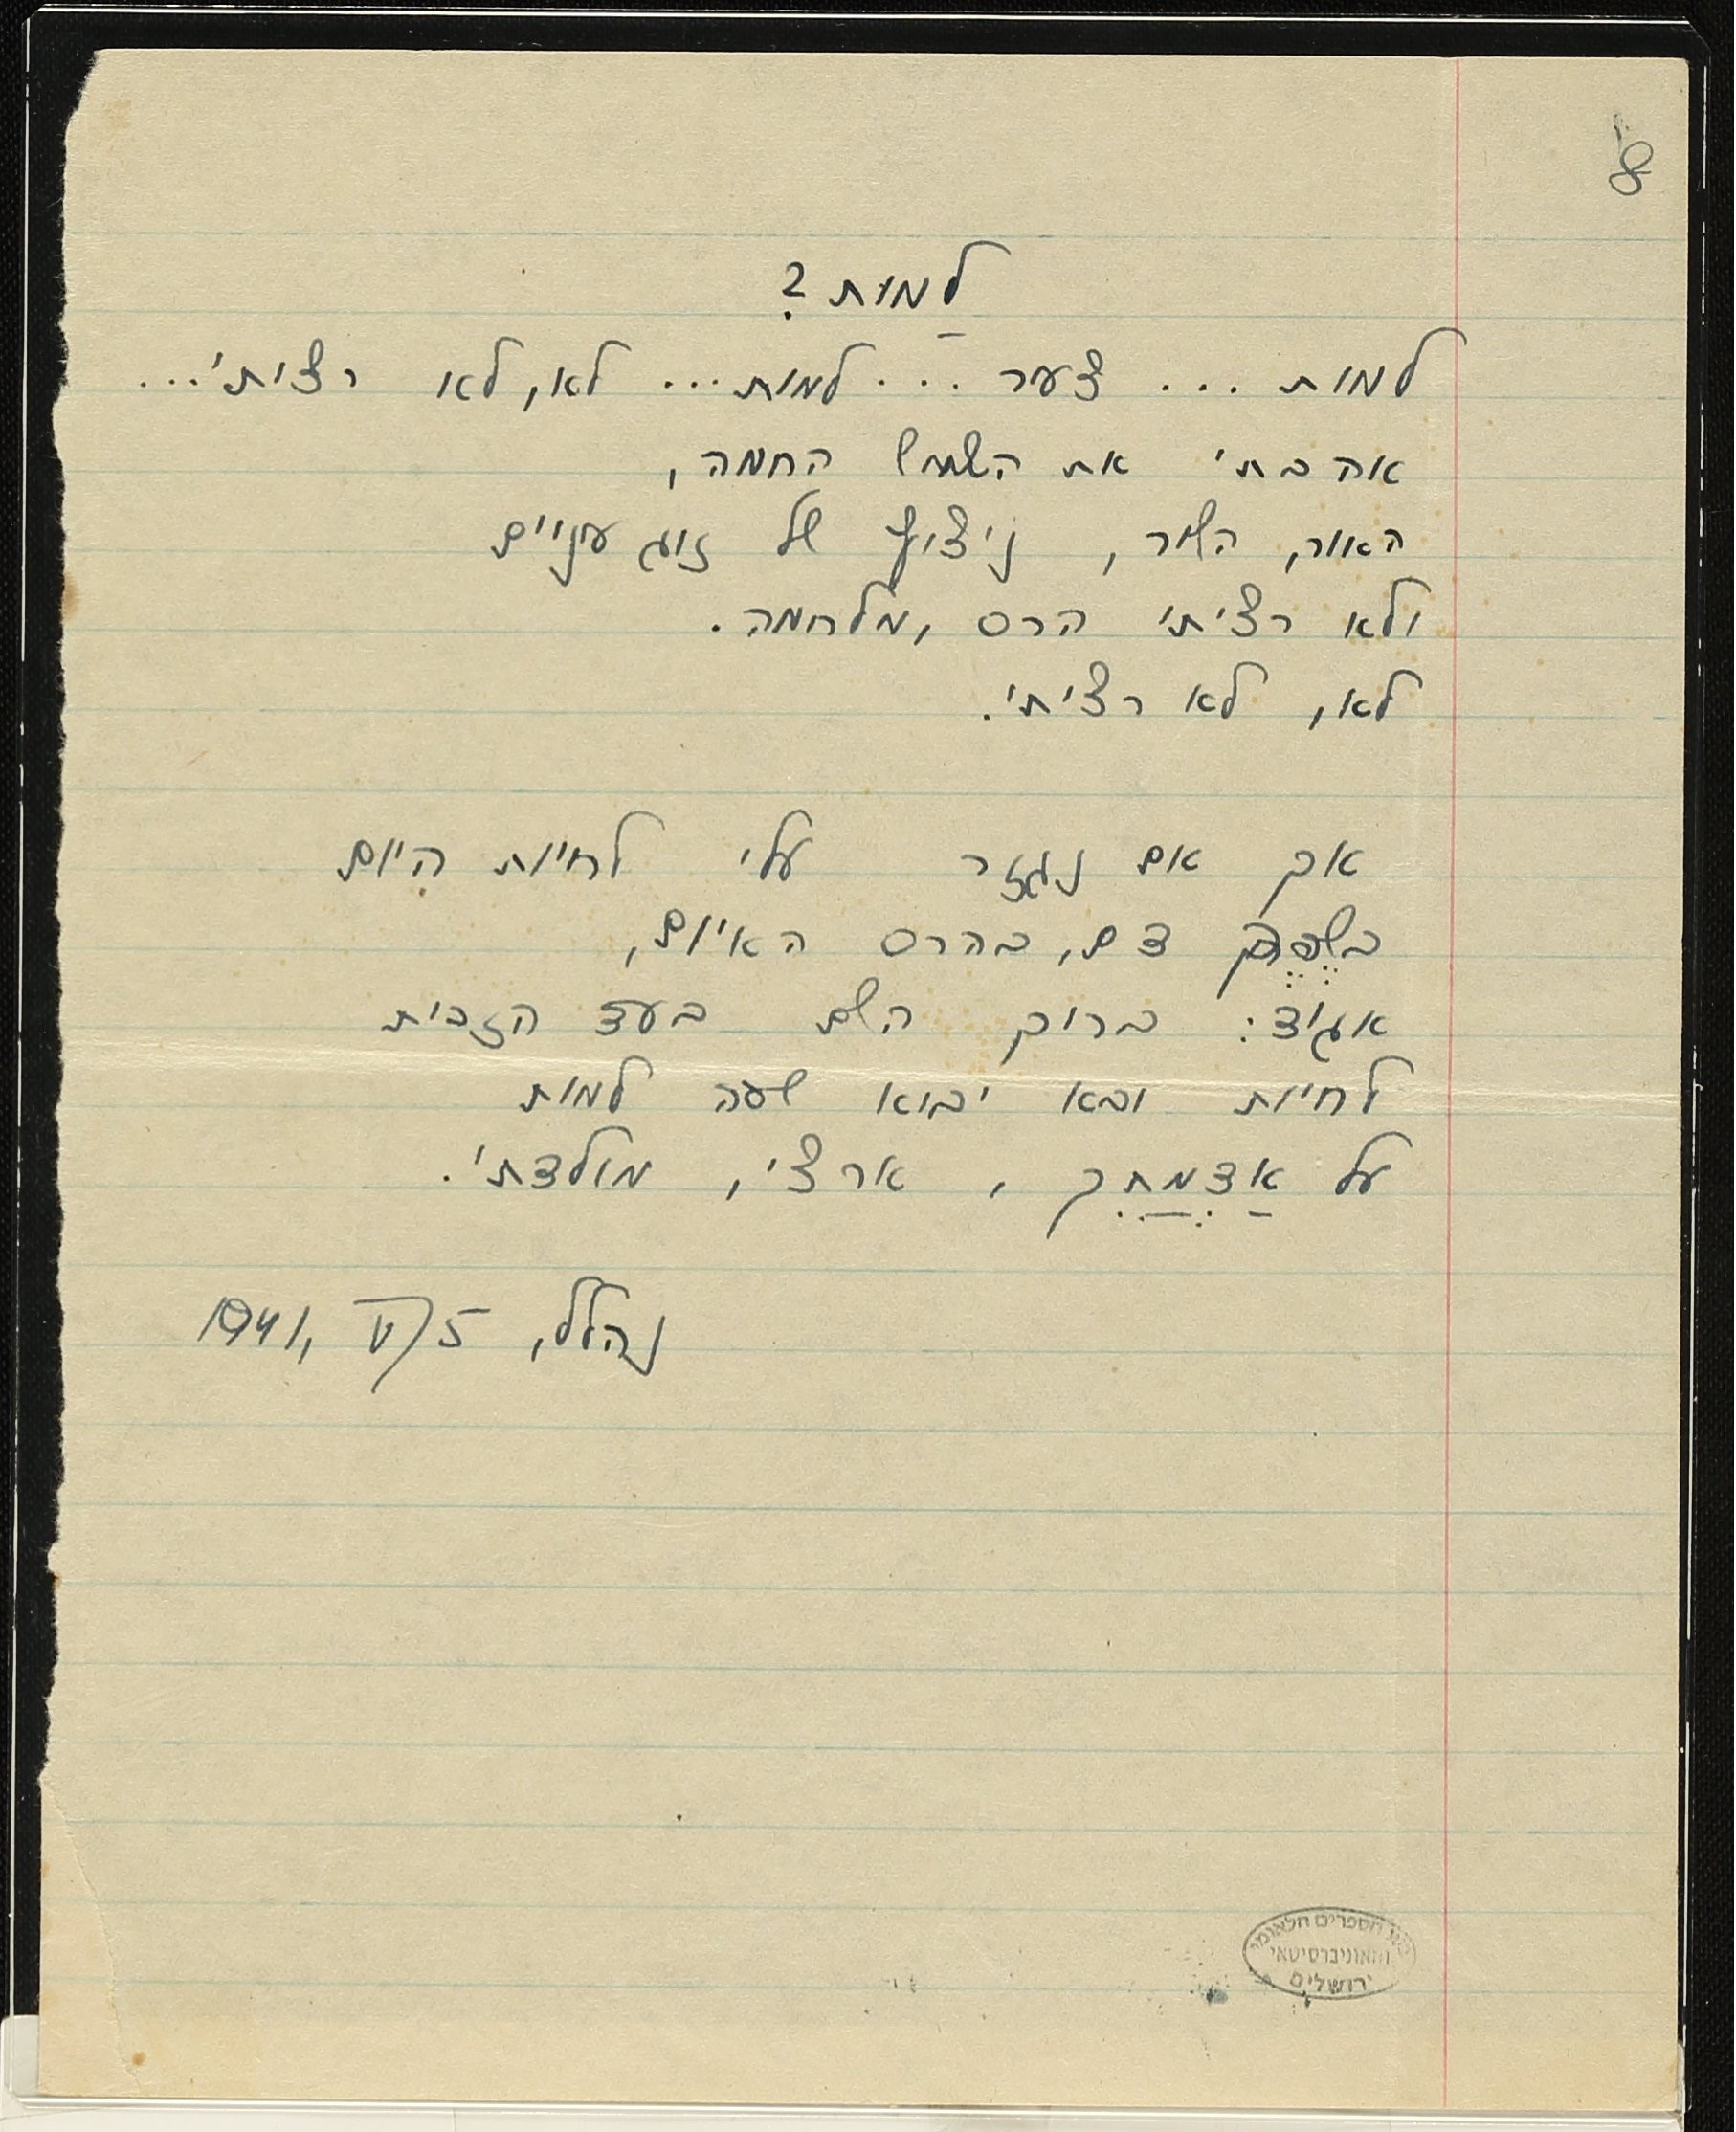 8
לַמות?
למות... צער... למות... לא, לא רציתי...
אהבתי את השמש החמה,
האור, השיר, ניצוץ של זוג עניים
ולא רציתי הרס, מלחמה.
לא, לא רציתי.
אך אם נגזר עלי לחיות היום
בשֶפֶך דם, בהרס האיום,
אגיד: ברוך השם בעד הזכות
לחיות ובא יבוא שעה למות
על אַדְמַתִך, ארצי, מולדתי.
נהלל, 5/V, 1941
בית הספרים הלאומי
והאוניברסיטאי
ירושלים